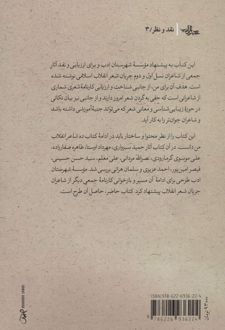 نقد و نظر/۳
این کتاب به پیشنهاد مؤسسهٔ شهرستان ادب و برای ارزیابی و نقد آثار
جمعی از شاعران نسل اول و دوم جریان شعر انقلاب اسلامی نوشته شده
است. هدف آن برای من، از جانبی شناخت و ارزیابی کارنامهٔ شعری شماری
از شاعرانی است که حقی به گردن شعر امروز دارند و از جانبی بر بیان نکاتی
در حوزهٔ زیبایی‌شناسی و معانی شعر که می‌تواند جنبهٔ آموزشی داشته باشد
و شاعران جوان‌تر را به کار آید.
این کتاب را از نظر محتوا و ساختار باید در ادامهٔ کتاب ده شاعر انقلاب
من دانست. در آن کتاب آثار حمید سبزواری، مهرداد اوستا، طاهره صفارزاده،
علی موسوی گرمارودی، نصرالله مردانی، علی معلم، سید حسن حسینی،
قیصر امین‌پور، احمد عزیزی و سلمان هراتی بررسی شد. مؤسسهٔ شهرستان
ادب طرحی برای ادامهٔ آن مسیر و بازخوانی کارنامهٔ جمعی دیگر از شاعران
جریان شعر انقلاب پیشنهاد کرد. کتاب حاضر، حاصل آن طرح است.
ISBN: 978-622-6936-22-4
9 786226 936224